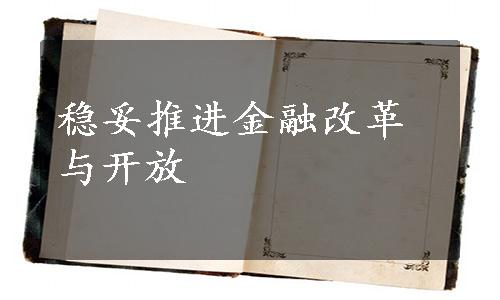 稳妥推进金融改革
与开放